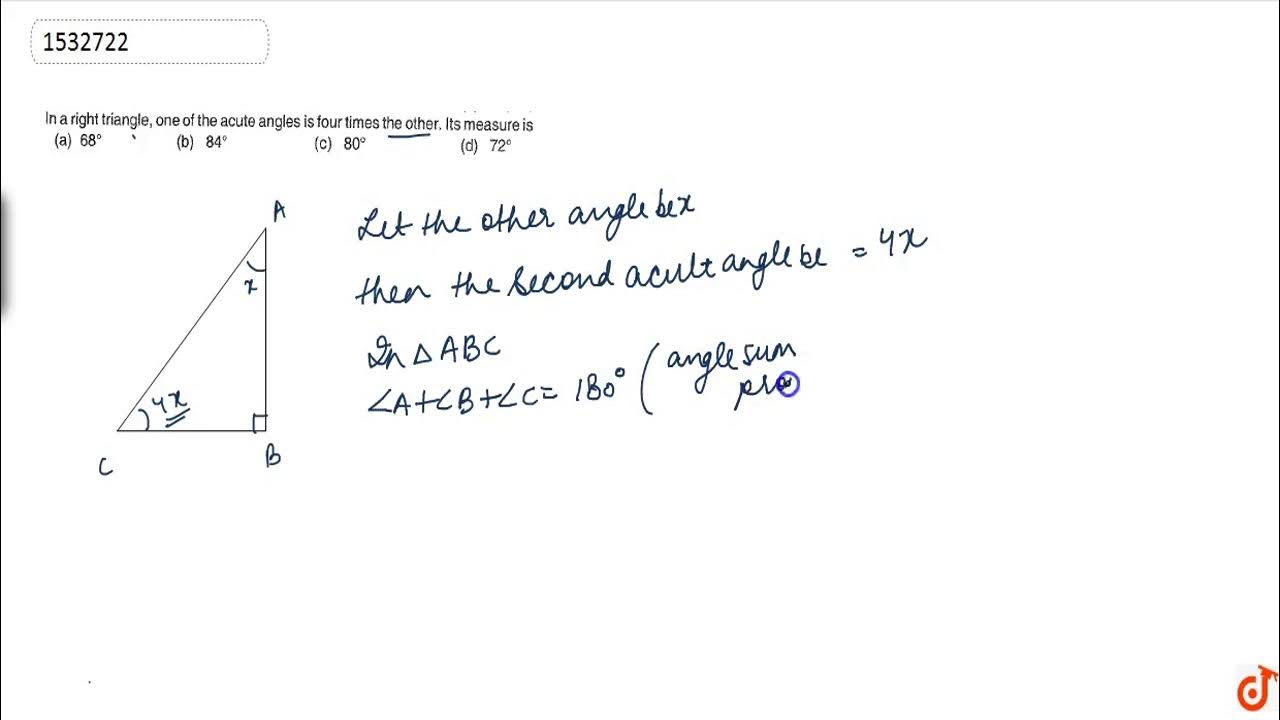 1532722
In a right triangle, one of the acute angles is four times the other. Its measure is
(a) 68° (b) 84° (c) 80° (d) 72°
A
Let the other angle be x
then the second acult angle be = 4x
x
In △ ABC
∠A+∠B+∠C= 180° (angle sum
4x
C
B